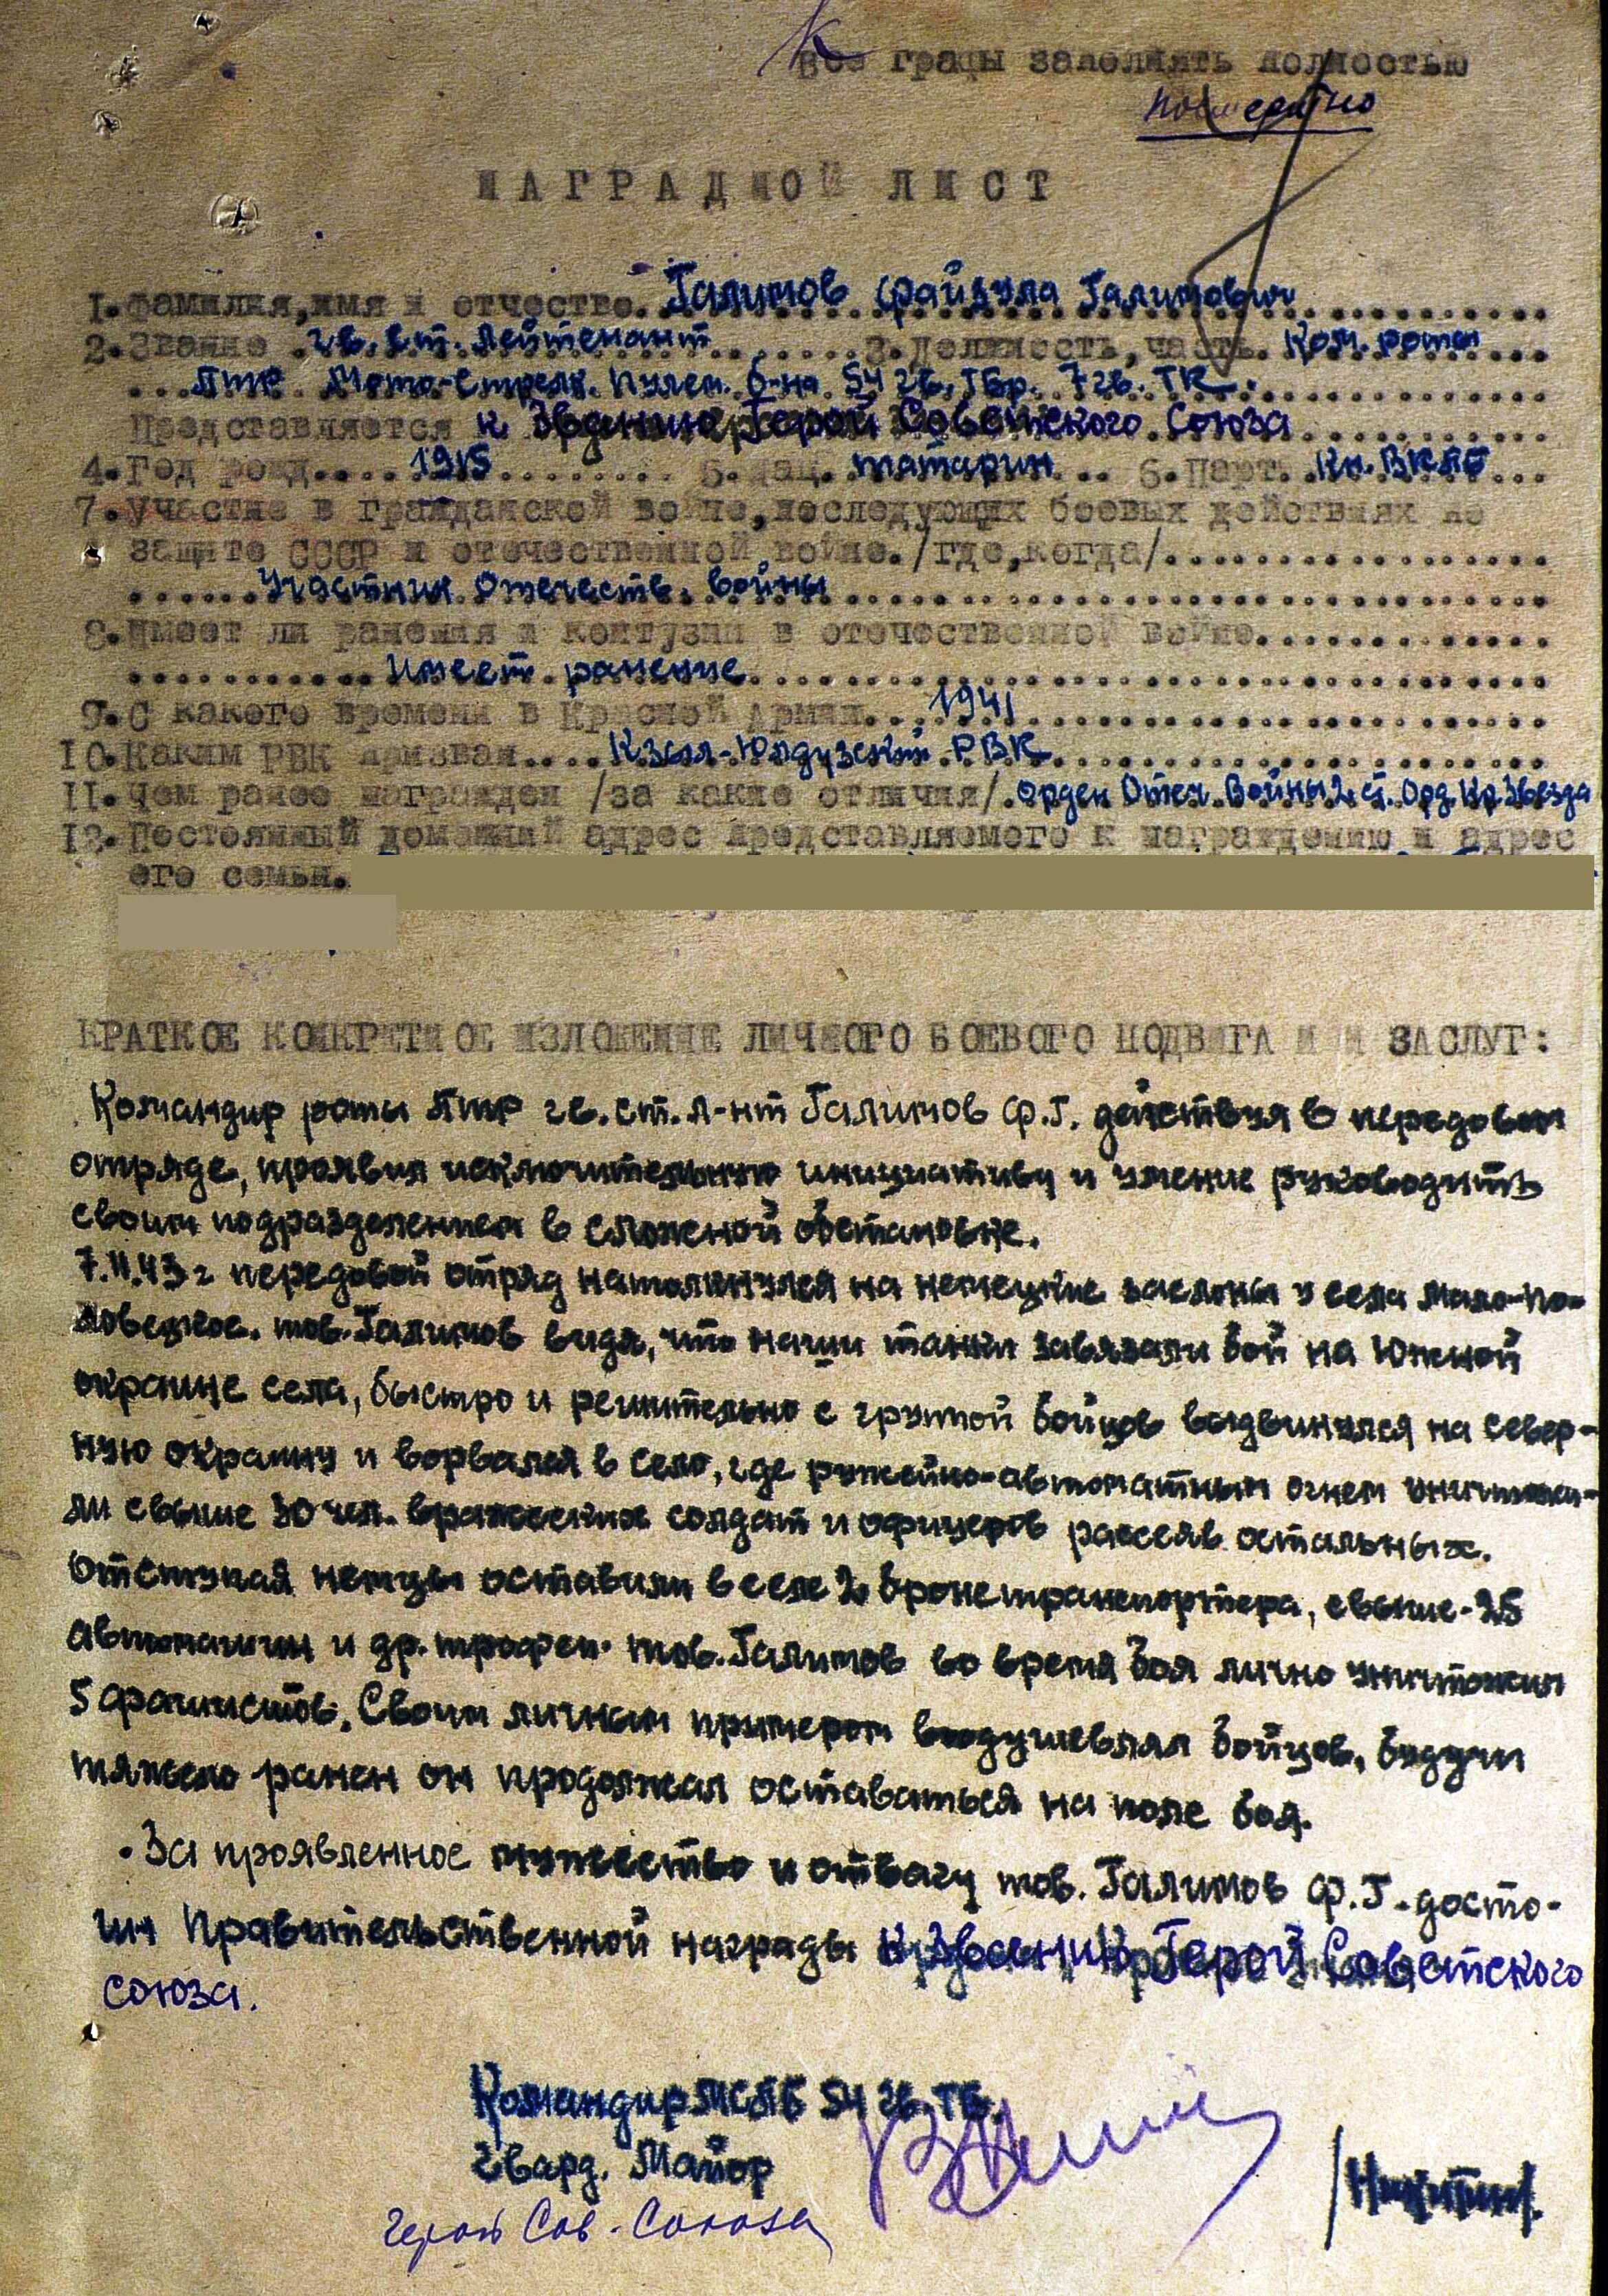 Все графы заполнять полностью
посмертно
НАГРАДНОЙ ЛИСТ
1. Фамилия, имя и отчество. Галимов Файзула Галимович
2. Звание гв. ст. лейтенант 3. Должность, часть. Ком. роты
ПТР Мото-Стрелк. Пулем. б-на 54 гв. ТБр. 7 гв. ТК.
Представляется к Званию Герой Советского Союза
4. Год рожд. 1915 5. Нац. татарин 6. Парт. Кн. ВКПБ
7. Участие в гражданской войне, последующих боевых действиях по
защите СССР и отечественной войне. /где, когда/
Участник Отечеств. войны
8. Имеет ли ранения и контузии в отечественной войне.
Имеет ранение
9. С какого времени в Красной Армии. 1941
10. Каким РВК призван Кзыл-Юлдузский РВК
11. Чем ранее награжден /за какие отличия/. Орден Отеч. Войны 2 ст. Орд. Кр. Звезда
12. Постоянный домашний адрес представляемого к награждению и адрес
его семьи.
КРАТКОЕ КОНКРЕТНОЕ ИЗЛОЖЕНИЕ ЛИЧНОГО БОЕВОГО ПОДВИГА ИЛИ ЗАСЛУГ:
Командир роты ПТР гв. ст. л-нт Галимов Ф.Г. действуя в передовом
отряде, проявил исключительную инициативу и умение руководить
своим подразделением в сложной обстановке.
7.11.43 г передовой отряд натолкнулся на немецкие заслоны у села Мало-По-
ловецкое. тов. Галимов видя, что наши танки завязали бой на Южной
окраине села, быстро и решительно с группой бойцов выдвинулся на север-
ную окраину и ворвался в село, где ружейно-автоматным огнем уничтожи-
ли свыше 30 чел. вражеских солдат и офицеров рассеяв остальных.
Отступая немцы оставили в селе 2 бронетранспортера, свыше - 25
автомашин и др. трофеи. тов. Галимов во время боя лично уничтожил
5 фашистов. Своим личным примером воодушевлял бойцов, будучи
тяжело ранен он продолжал оставаться на поле боя.
За проявленное мужество и отвагу тов. Галимов Ф.Г. досто-
ин Правительственной награды к Званию Герой Советского
союза.
Командир МСПБ 54 гв. ТБ.
Гвард. Майор
Герой Сов. Союза
/Никитин/.